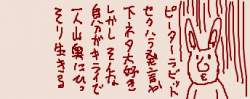 ピーターラビッド
セクハラ発言や
下ネタ大好き
しかしそんな
自分がキライで
一人山奥にひっ
そり生きる